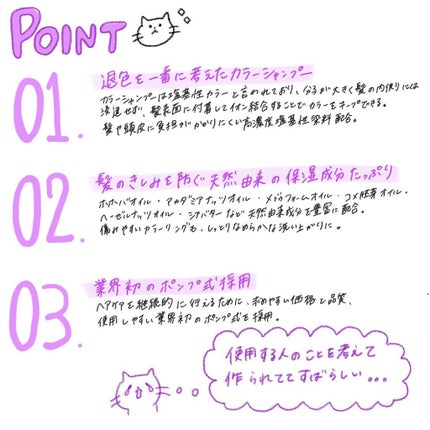 POINT
01.
退色を一番に考えたカラーシャンプー
カラーシャンプーは塩基性カラーと言われており、分子が大きく髪の内側には
浸透せず、髪表面に付着してイオン結合することでカラーをキープできる。
髪や頭皮に負担がかかりにくい高濃度塩基性染料配合。
02.
髪のきしみを防ぐ天然由来の保湿成分たっぷり
ホホバオイル・マカダミアナッツオイル・メドウフォームオイル・コメ胚芽オイル・
ヘーゼルナッツオイル・シアバターなど天然由来成分を豊富に配合。
傷みやすいカラーリングも、しっとりなめらかな洗い上がりに。
03.
業界初のポンプ式採用
ヘアケアを継続的に行えるために、求めやすい価格と品質、
使用しやすい業界初のポンプ式を採用。
使用する人のことを考えて
作られててすばらしい...